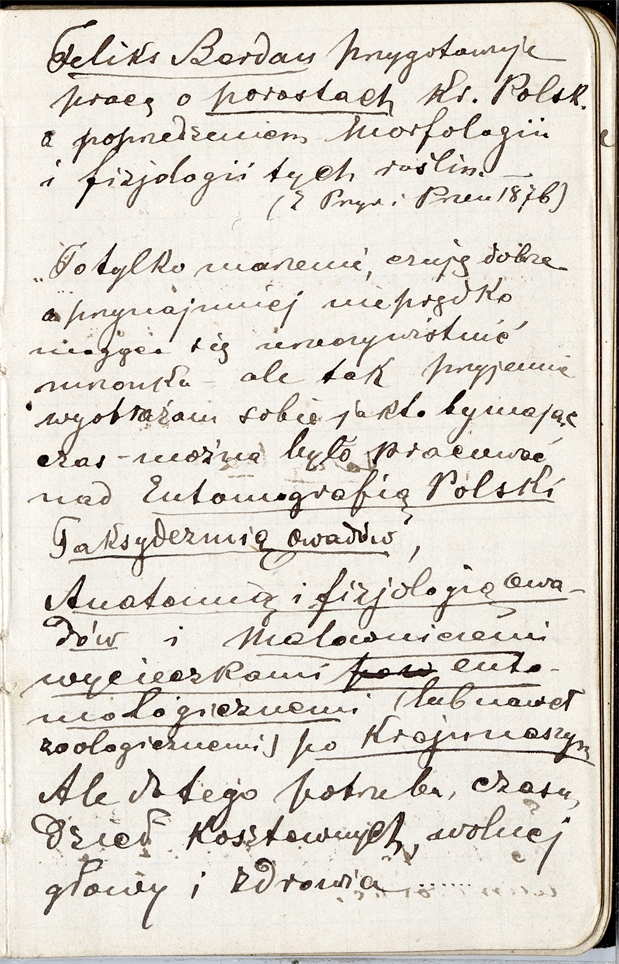 Feliks Berdau przygotowuje
pracę o porostach Kr. Polsk.
z poprzedzeniem Morfologii
i fizjologii tych roślin. —
(Z Przyr. i Przem 1876)
"To tylko marzenie, czuję dobrze
a przynajmniej nie prędko
mogące się urzeczywistnić
mrzonka – ale tak przyjemnie
wyobrażam sobie jak to by mając
czas – można było pracować
nad Entomografią Polski
Taksydermią owadów",
Anatomią i fizjologią owa-
dów i Malowniczemi
wycieczkami ento-
mologicznemi (lub nawet
zoologicznemi) po Kraju naszym
Ale do tego potrzeba, czasu,
Dzieł Kosztownych, wolnej
głowy i zdrowia ........